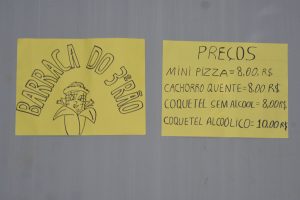 BARRACA DO 3ºRÃO
PREÇOS
MINI PIZZA = 8,00 R$
CACHORRO QUENTE = 8,00 R$
COQUETEL SEM ALCOOL = 8,00 R$
COQUETEL ALCOÓLICO = 10,00 R$